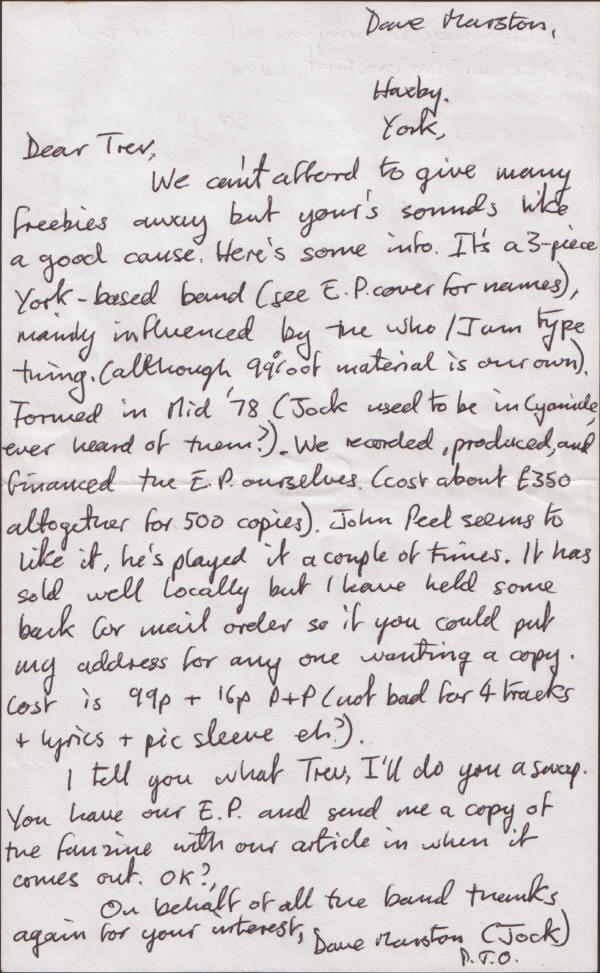 Dave Marston,
Haxby.
York,
Dear Trev,
We can't afford to give many
freebies away but your's sounds like
a good cause. Here's some info. It's a 3-piece
York-based band (see E.P. cover for names),
mainly influenced by the Who / Jam type
thing. (although 99% of material is our own).
Formed in Mid '78 (Jock used to be in Cyanide,
ever heard of them?). We recorded, produced, and
financed the E.P. ourselves. (cost about £350
altogether for 500 copies). John Peel seems to
like it, he's played it a couple of times. It has
sold well locally but I have held some
back for mail order so if you could put
my address for any one wanting a copy.
Cost is 99p + 16p P+P (not bad for 4 tracks
+ lyrics + pic sleeve eh?).
I tell you what Trev, I'll do you a swap.
You have our E.P. and send me a copy of
the fanzine with our article in when it
comes out. OK?,
On behalf of all the band thanks
again for your interest, Dave Marston (Jock)
P.T.O.